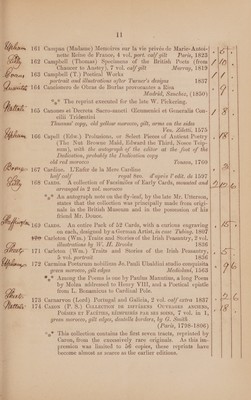 11
161 Campan (Madame) Memoires sur la vie privée de Marie-Antoi-
nette Reine de France, 4 vol. port. calf gilt Paris, 1823
162 Campbell (Thomas) Specimens of the British Poets (from
Chaucer to Anstey), 7 vol. calf gilt Murray, 1819
163 Campbell (T.) Poetical Works
portrait and illustrations after Turner's designs 1837
164 Cancionero de Obras de Burlas provocantes a Risa
Madrid, Sanchez, (1520)
*** The reprint executed for the late W. Pickering.
165 Canones et Decreta Sacro-sancti Œcumenici et Generalis Con-
cilii Tridentini
Thuanus' copy, old yellow morocco, gilt, arms on the sides
Ven. Ziletti, 1575
166 Capell (Edw.) Prolusions, or Select Pieces of Antient Poetry
(The Nut Browne Maid, Edward the Third, Nosce Teip-
sum), with the autograph of the editor at the foot of the
Dedication, probably the Dedication copy
old red morocco Tonson, 1760
167 Cardinc. L'Enfer de la Mere Cardine
half calf repd. ton. d'après l'edit. de 1597
168 Cards. A collection of Facsimiles of Early Cards, mounted and
arranged in 2 vol. morocco
*** An autograph note on the fly-leaf, by the late Mr. Utterson,
states that the collection was principally made from origi-
nals in the British Museum and in the possession of his
friend Mr. Douce.
169 Cards. An entire Pack of 52 Cards, with a curious engraving
on each, designed by a German Artist, in case Tubing. 1807
170 Carleton (Wm.) Traits and Stories of the Irish Peasantry, 2 vol.
illustrations by W. H. Brooke 1836
171 Carleton (Wm.) Traits and Stories of the Irish Peasantry,
5 vol. portrait 1836
172 Carmina Poetarum nobilium Jo. Pauli Ubaldini studio conquisita
green morocco, gilt edges Mediolani, 1563
*** Among the Poems is one by Paulus Manutius, a long Poem
by Molsa addressed to Henry VIII., and a Poetical epistle
from L. Bonamicus to Cardinal Pole.
173 Carnarvon (Lord) Portugal and Galicia, 2 vol. calf extra 1837
174 Caron (P. S.) Collection de differens Ouvrages anciens,
Poesies et Facéties, réimprimés par ses soins, 7 vol. in 1,
green morocco, gilt edges, dentelle borders, by G. Smith
(Paris, 1798-1806)
*** This collection contains the first seven tracts, reprinted by
Caron, from the excessively rare originals. As this im-
pression was limited to 56 copies, these reprints have
become almost as scarce as the earlier editions.